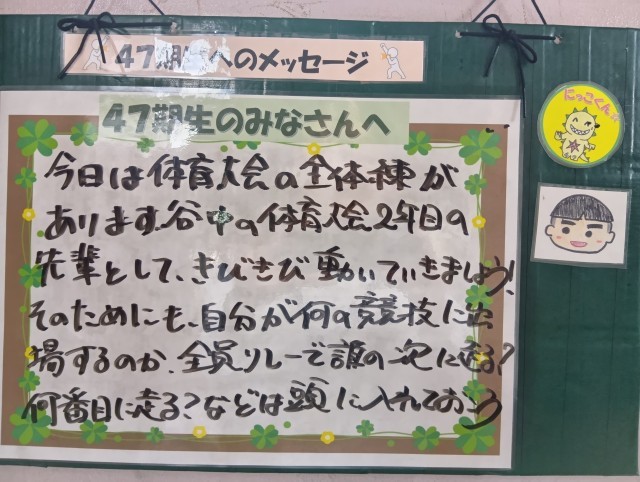 47期生へのメッセージ
47期生のみなさんへ
今日は体育大会の全体練が
あります。谷中の体育大会2年目の
先輩として、きびきび動いていきましょう!
そのためにも、自分が何の競技に出
場するのか、全員リレーで誰の次に走る?
何番目に走る?などは頭に入れておこう
にっこくん